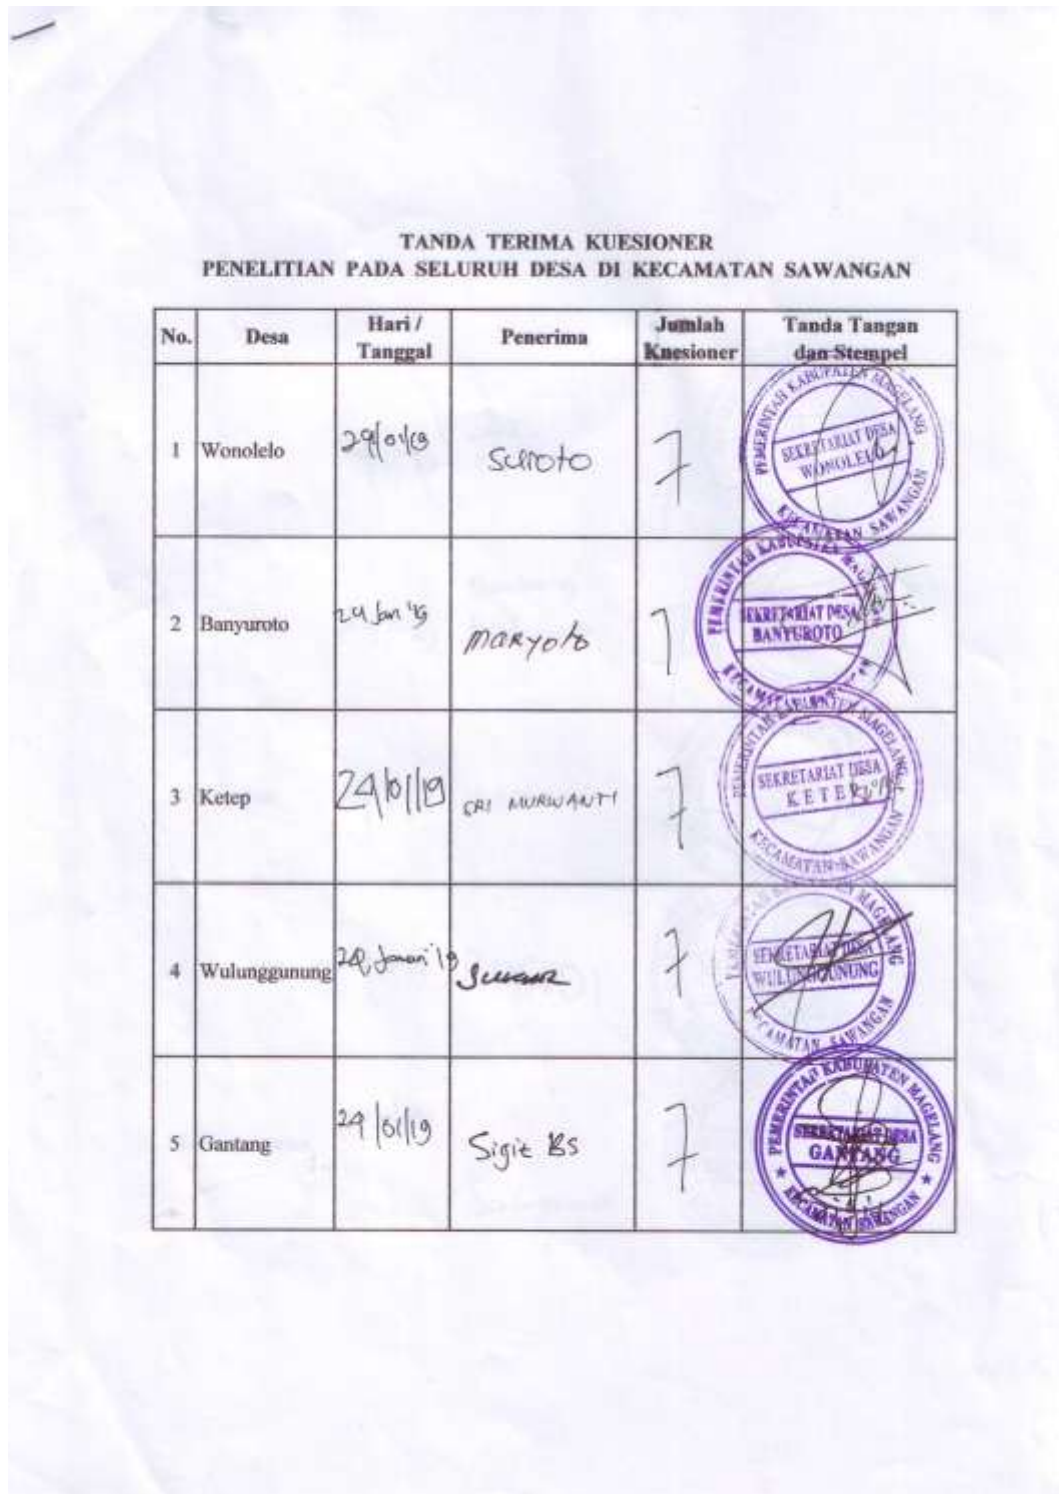 TANDA TERIMA KUESIONER
PENELITIAN PADA SELURUH DESA DI KECAMATAN SAWANGAN
No. Desa Hari / Tanggal Penerima Jumlah Kuesioner Tanda Tangan dan Stempel
1 Wonolelo 29/01/19 Suroto 7
PEMERINTAH KABUPATEN MAGELANG
SEKRETARIAT DESA
WONOLELO
KECAMATAN SAWANGAN
2 Banyuroto 29 Jan '19 Maryoto 7
PEMERINTAH KABUPATEN
SEKRETARIAT DESA
BANYUROTO
KECAMATAN
3 Ketep 29/01/19 SRI MURWANTI 7
PEMERINTAH KABUPATEN MAGELANG
SEKRETARIAT DESA
KETEP
KECAMATAN SAWANGAN
4 Wulunggunung 29, Januari '19 7
MAGELANG
SEKRETARIAT DESA
WULUNGGUNUNG
KECAMATAN SAWANGAN
5 Gantang 29/01/19 Sigit BS 7
PEMERINTAH KABUPATEN MAGELANG
SEKRETARIAT DESA
GANTANG
KECAMATAN SAWANGAN